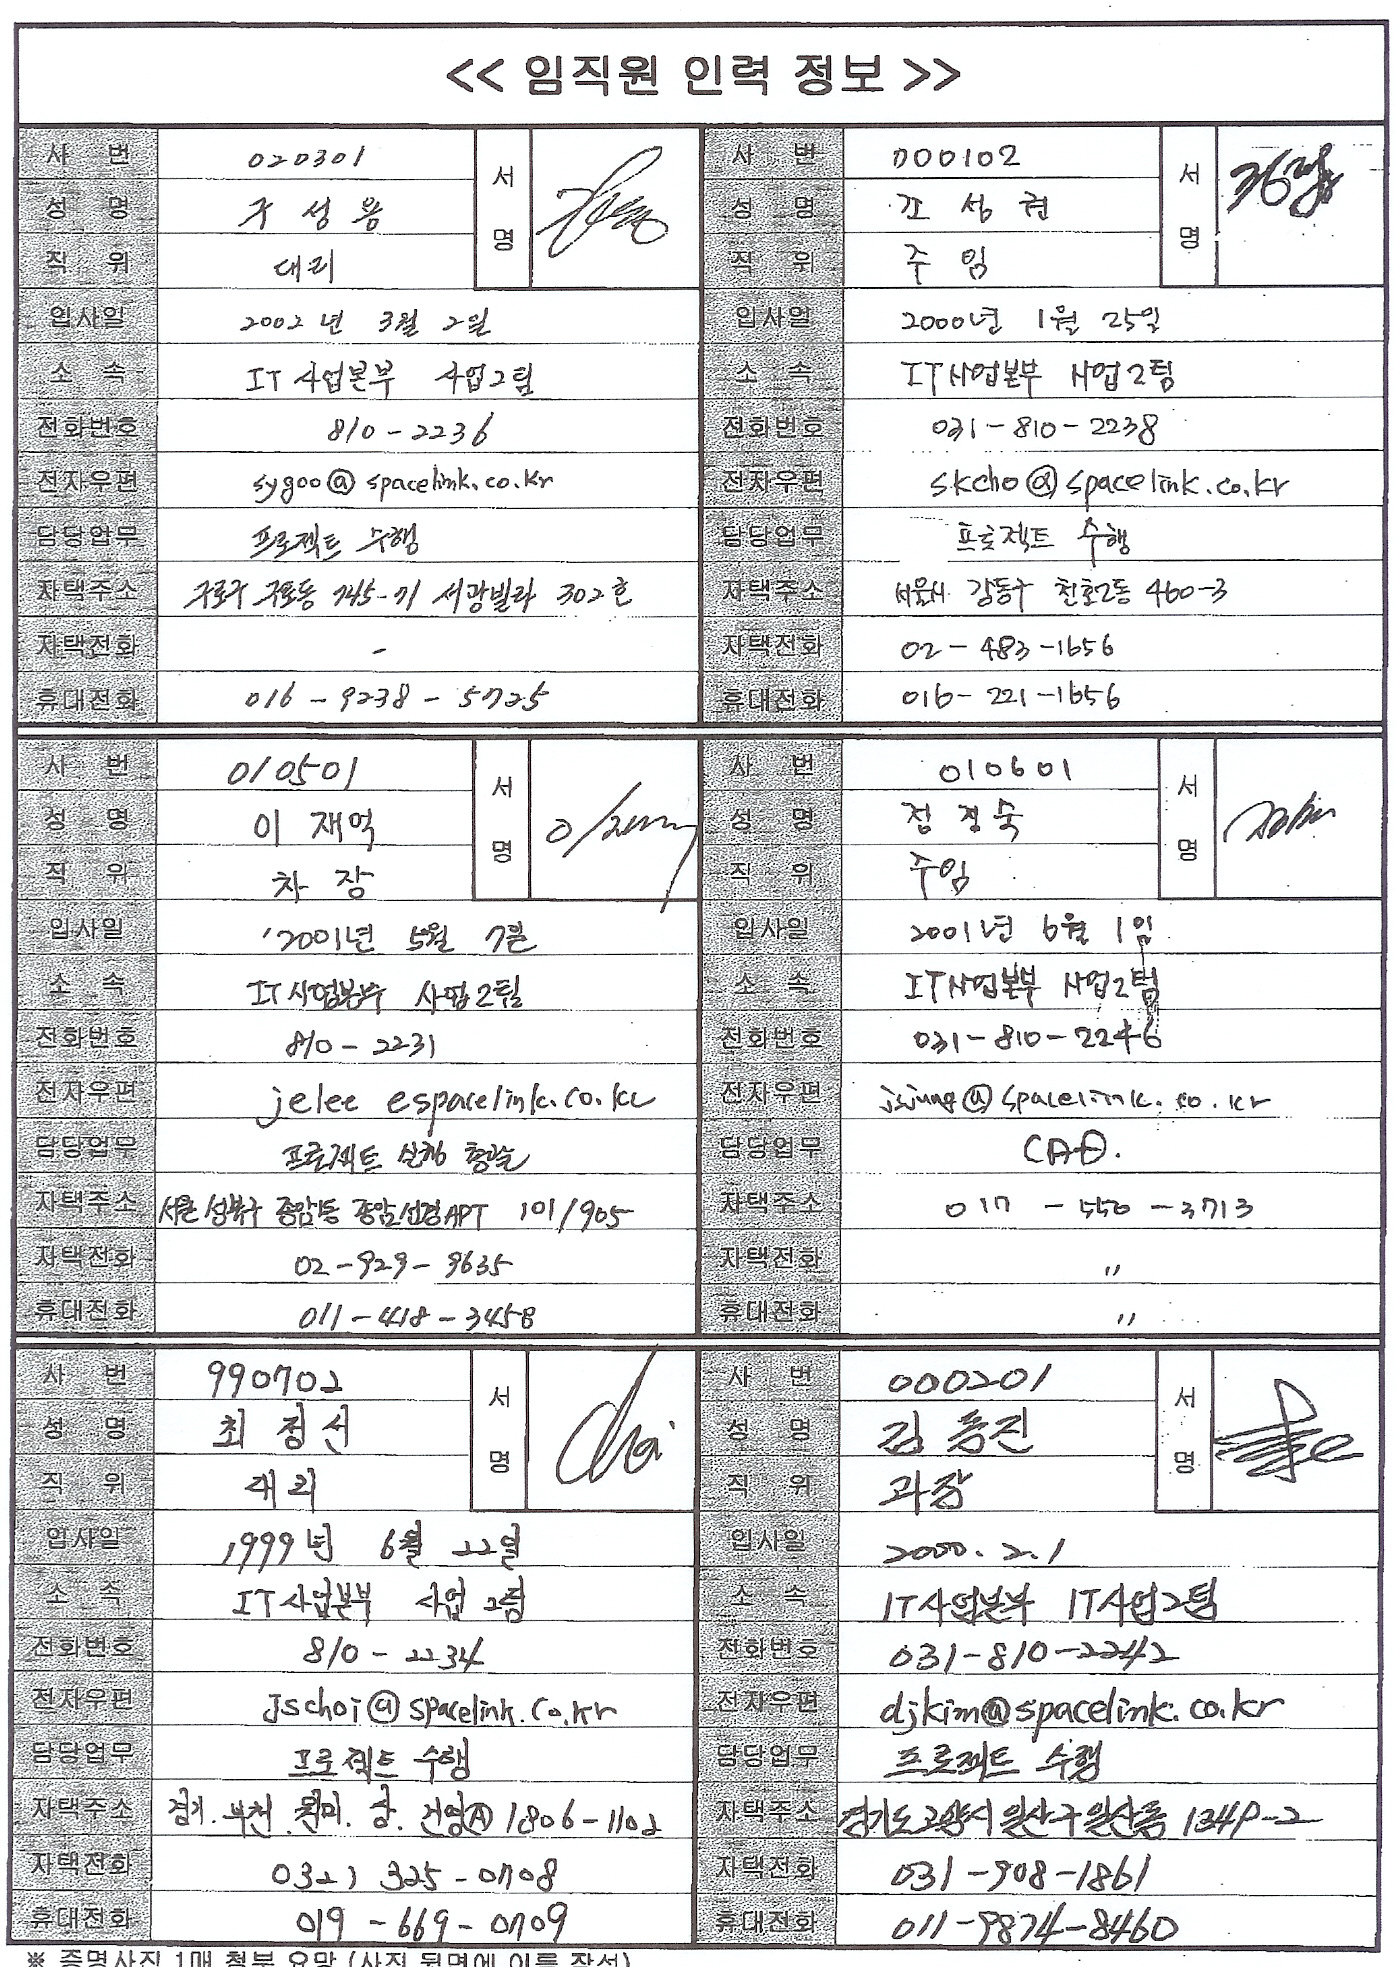 << 임직원 인력 정보 >>
사 번 020301 서명
성 명 구성용
직 위 대리
입사일 2002년 3월 2일
소 속 IT사업본부 사업2팀
전화번호 810-2236
전자우편 sygoo@spacelink.co.kr
담당업무 프로젝트 수행
자택주소 구로구 구로동 745-71 서광빌라 302호
자택전화 -
휴대전화 016-9238-5725
사 번 000102 서명
성 명 조성권
직 위 주임
입사일 2000년 1월 25일
소 속 IT사업본부 사업2팀
전화번호 031-810-2238
전자우편 skcho@spacelink.co.kr
담당업무 프로젝트 수행
자택주소 서울시 강동구 천호2동 460-3
자택전화 02-483-1656
휴대전화 016-221-1656
사 번 010501 서명
성 명 이재억
직 위 차장
입사일 '2001년 5월 7일
소 속 IT사업본부 사업2팀
전화번호 810-2231
전자우편 jelee espacelink.co.kr
담당업무 프로젝트
자택주소 서울 성북구 종암1동 종암선경APT 101/905
자택전화 02-929-9635
휴대전화 011-418-3458
사 번 010601 서명
성 명 정정숙
직 위 주임
입사일 2001년 6월 1일
소 속 IT사업본부 사업2팀
전화번호 031-810-2246
전자우편 jsjung@spacelink.co.kr
담당업무 CAD.
자택주소 017-550-3713
자택전화 〃
휴대전화 〃
사 번 990702 서명
성 명 최정선
직 위 대리
입사일 1999년 6월 22일
소 속 IT사업본부 사업2팀
전화번호 810-2234
전자우편 jschoi@spacelink.co.kr
담당업무 프로젝트 수행
자택주소 경기. 부천. 원미. 상. 건영Ⓐ 1806-1102
자택전화 032) 325-0708
휴대전화 019-669-0709
사 번 000201 서명
성 명 김동진
직 위 과장
입사일 2000.2.1
소 속 IT사업본부 IT사업2팀
전화번호 031-810-2242
전자우편 djkim@spacelink.co.kr
담당업무 프로젝트 수행
자택주소 경기도 고양시 일산구 일산동 1349-2
자택전화 031-908-1861
휴대전화 011-9874-8460
※ 증명사진 1매 첨부 요망 (사진 뒷면에 이름 작성)